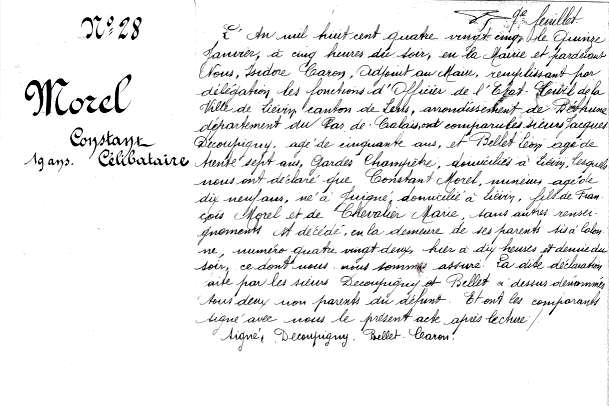 9e feuillet
N° 28
Morel
Constant
19 ans. Célibataire
L'An mil huit cent quatre vingt cinq, le Quinze
Janvier, à cinq heures du soir, en la Mairie et pardevant
Nous, Isidore Caron, Adjoint au Maire, remplissant par
délégation les fonctions d'Officier de l'Etat-Civil de la
Ville de Liévin canton de Lens, arrondissement de Béthune
département du Pas-de-Calais, ont comparu les sieurs Jacques
Decoupigny, agé de cinquante ans, et Bellet Léon agé de
trente sept ans, Gardes Champêtre, domiciliés à Liévin, lesquels
nous ont déclaré que Constant Morel, mineur agé de
dix neuf ans, né à domicilié à Liévin, fils de Fran-
çois Morel et de Chevalier Marie, sans autres rensei-
gnements est décédé, en la demeure de ses parents sis à Calon-
ne, numéro quatre vingt deux, hier à dix heures et demie du
soir, ce dont nous nous sommes assuré. La dite déclaration
faite par les sieurs Decoupigny et Bellet ci dessus dénommés
tous deux non parents du défunt. Et ont les comparants
signé avec nous le présent acte après lecture /
Signé, Decoupigny. Bellet. Caron.